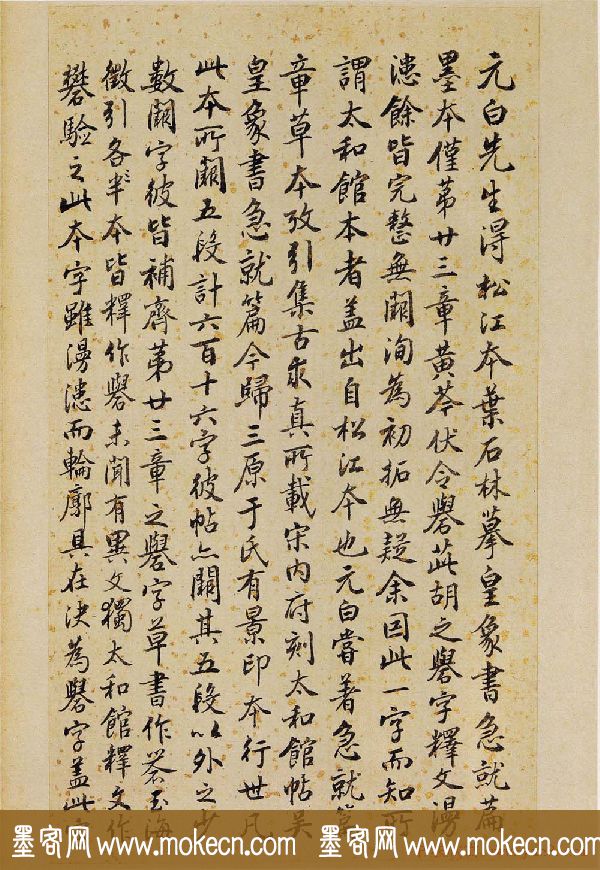 元白先生得松江本葉石林摹皇象書急就篇
墨本僅苐廿三章黃芩伏令礜茈胡之礜字釋文漫
漶餘皆完整無闕洵為初拓無疑余因此一字而知所
謂太和館本者盖出自松江本也元白嘗著急就篇
章草本攷引集古求真所載宋內府刻太和館帖吳
皇象書急就篇今歸三原于氏有景印本行世凡
此本所闕五段計六百十六字彼帖亦闕其五段以外之少
數闕字彼皆補齊苐廿三章之礜字草書作 玉海
徵引各本皆釋作礜未聞有異文獨太和館釋文作
礬驗之此本字雖漫漶而輪廓具在決為礜字盖此
墨客网 www.mokecn.com 墨客网 www.mokecn.com